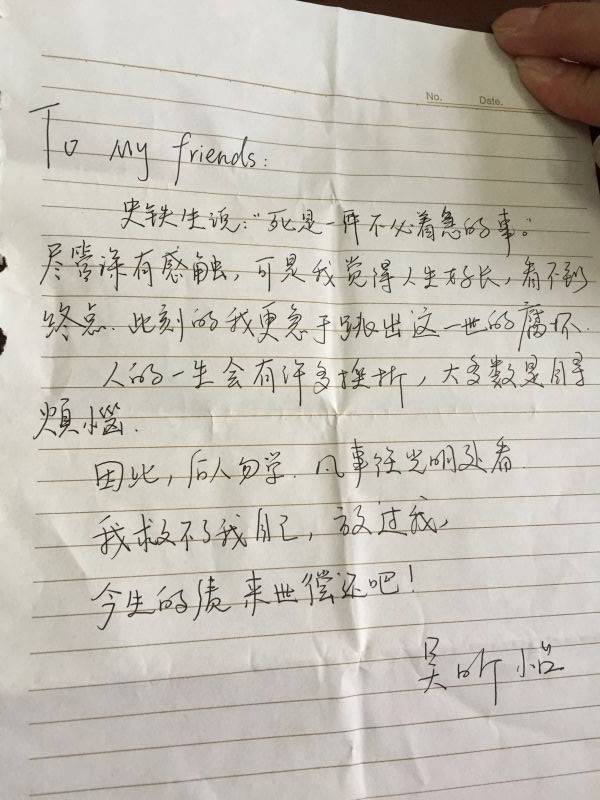 No. Date.
To My friends:
史铁生说:“死是一件不必着急的事。”
尽管深有感触,可是我觉得人生好长,看不到
终点.此刻的我更急于跳出这一世的腐坏.
人的一生会有许多挫折,大多数是自寻
煩惱.
因此,后人勿学.凡事往光明处看.
我救不了我自己,放过我,
今生的债来世偿还吧!
吴昕怡